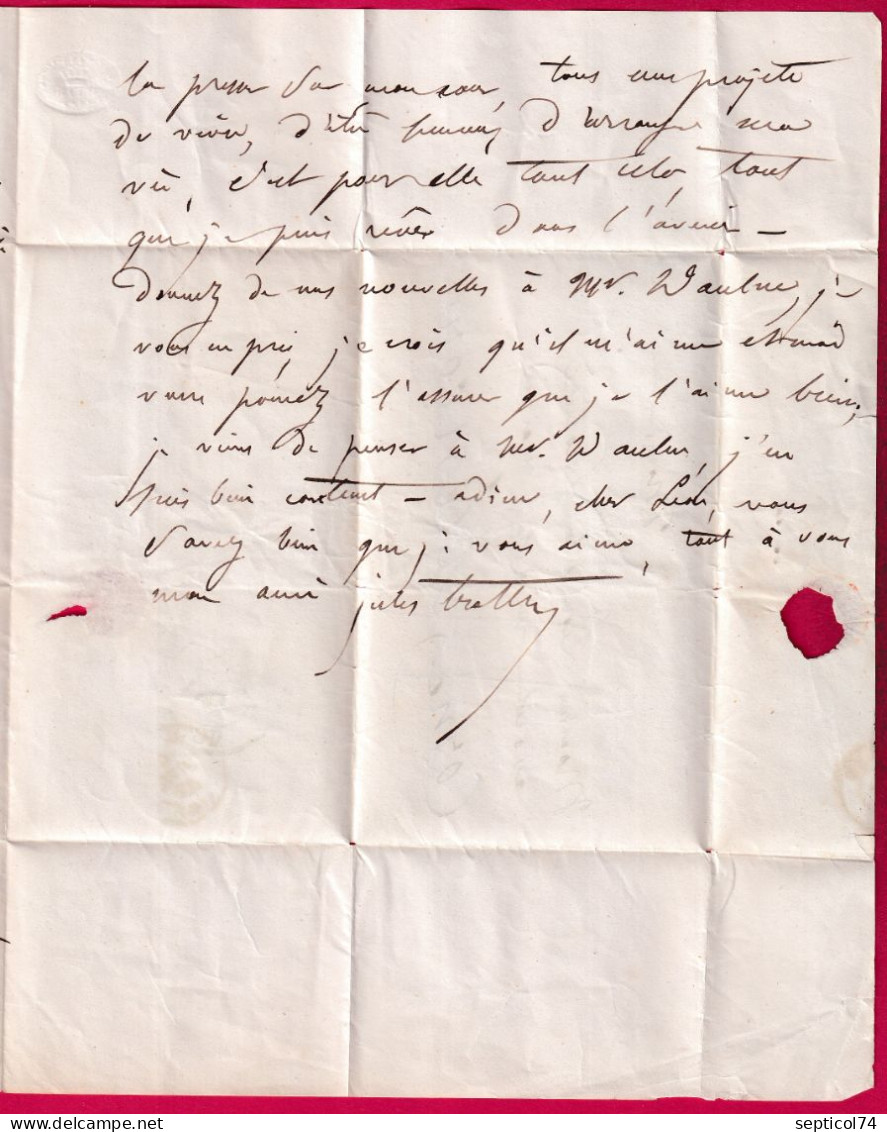 la presser sur mon cœur, tous mes projets
de vivre, d'être heureux, d'arranger ma
vie, c'est pour elle tout cela, tout
que je puis rêver dans l'avenir —
donnez de mes nouvelles à Mr. Waulue, je
vous en prie, je crois qu'il m'aime et moi
vous pouvez l'assurer que je l'aime bien,
je viens de penser à Mr. Waulue, j'en
suis bien content — adieu, cher Léon, vous
savez bien que je vous aime, tout à vous
mon ami jules
septicol74